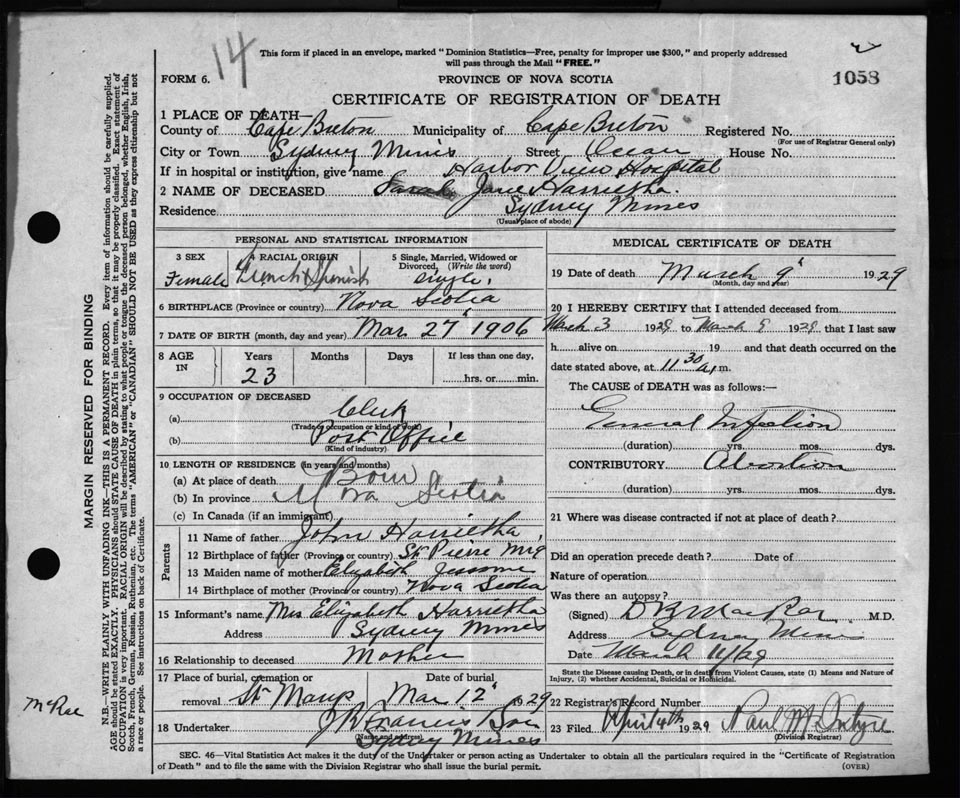 14
This form if placed in an envelope, marked "Dominion Statistics—Free, penalty for improper use $300," and properly addressed
will pass through the Mail "FREE."
FORM 6.
PROVINCE OF NOVA SCOTIA
1058
CERTIFICATE OF REGISTRATION OF DEATH
1 PLACE OF DEATH—
County of Cape Breton Municipality of Cape Breton Registered No.
(For use of Registrar General only)
City or Town Sydney Mines Street Ocean House No.
If in hospital or institution, give name Harbor View Hospital
2 NAME OF DECEASED Sarah Jane Harrietha.
Residence Sydney Mines
(Usual place of abode)
PERSONAL AND STATISTICAL INFORMATION
3 SEX 4 RACIAL ORIGIN 5 Single, Married, Widowed or
Divorced, (Write the word)
Female French Spanish single.
6 BIRTHPLACE (Province or country) Nova Scotia
7 DATE OF BIRTH (month, day and year) Mar 27 1906
8 AGE IN Years Months Days If less than one day,
23 hrs. or min.
9 OCCUPATION OF DECEASED
(a) Clerk
(Trade, occupation or kind of work)
(b) Post Office
(Kind of industry)
10 LENGTH OF RESIDENCE (in years and months)
(a) At place of death Born
(b) In province Nova Scotia
(c) In Canada (if an immigrant)
Parents
11 Name of father John Harrietha,
12 Birthplace of father (Province or country) St Pierre Miq
13 Maiden name of mother Elizabeth Jessome
14 Birthplace of mother (Province or country) Nova Scotia
15 Informant's name Mrs Elizabeth Harrietha
Address Sydney Mines
16 Relationship to deceased Mother
17 Place of burial, cremation or Date of burial
removal St Marys Mar 12 1929
18 Undertaker J R Francis & Son
(Name and address)
Sydney Mines
MEDICAL CERTIFICATE OF DEATH
19 Date of death March 9 1929
(Month, day and year)
20 I HEREBY CERTIFY that I attended deceased from
March 3 1929 to March 9 1929, that I last saw
h alive on 19 and that death occurred on the
date stated above, at 11 30 a.m.
The CAUSE of DEATH was as follows:—
General Infection
(duration) yrs. mos. dys.
CONTRIBUTORY Abortion
(duration) yrs. mos. dys.
21 Where was disease contracted if not at place of death?
Did an operation precede death? Date of
Nature of operation
Was there an autopsy?
(Signed) D B MacRae M.D.
Address Sydney Mines
Date March 11/29
State the Disease causing Death, or in death from Violent Causes, state (1) Means and Nature of
Injury, (2) whether Accidental, Suicidal or Homicidal.
22 Registrar's Record Number
23 Filed April 4th 1929 Paul McIntyre
(Division Registrar)
SEC. 46—Vital Statistics Act makes it the duty of the Undertaker or person acting as Undertaker to obtain all the particulars required in the "Certificate of Registration
of Death" and to file the same with the Division Registrar who shall issue the burial permit.
(OVER)
MARGIN RESERVED FOR BINDING
N.B.—WRITE PLAINLY WITH UNFADING INK—THIS IS A PERMANENT RECORD. Every item of information should be carefully supplied.
AGE should be stated EXACTLY. PHYSICIANS should STATE CAUSE OF DEATH in plain terms, so that it may be properly classified. Exact statement of
OCCUPATION is very important. RACIAL ORIGIN will be described by stating to what people or tongue the deceased person belonged, whether English, Irish,
Scotch, French, German, Russian, Ruthenian, etc. The terms "AMERICAN" or "CANADIAN" SHOULD NOT BE USED as they express citizenship but not
a race or people. See instructions on back of Certificate.
McRae